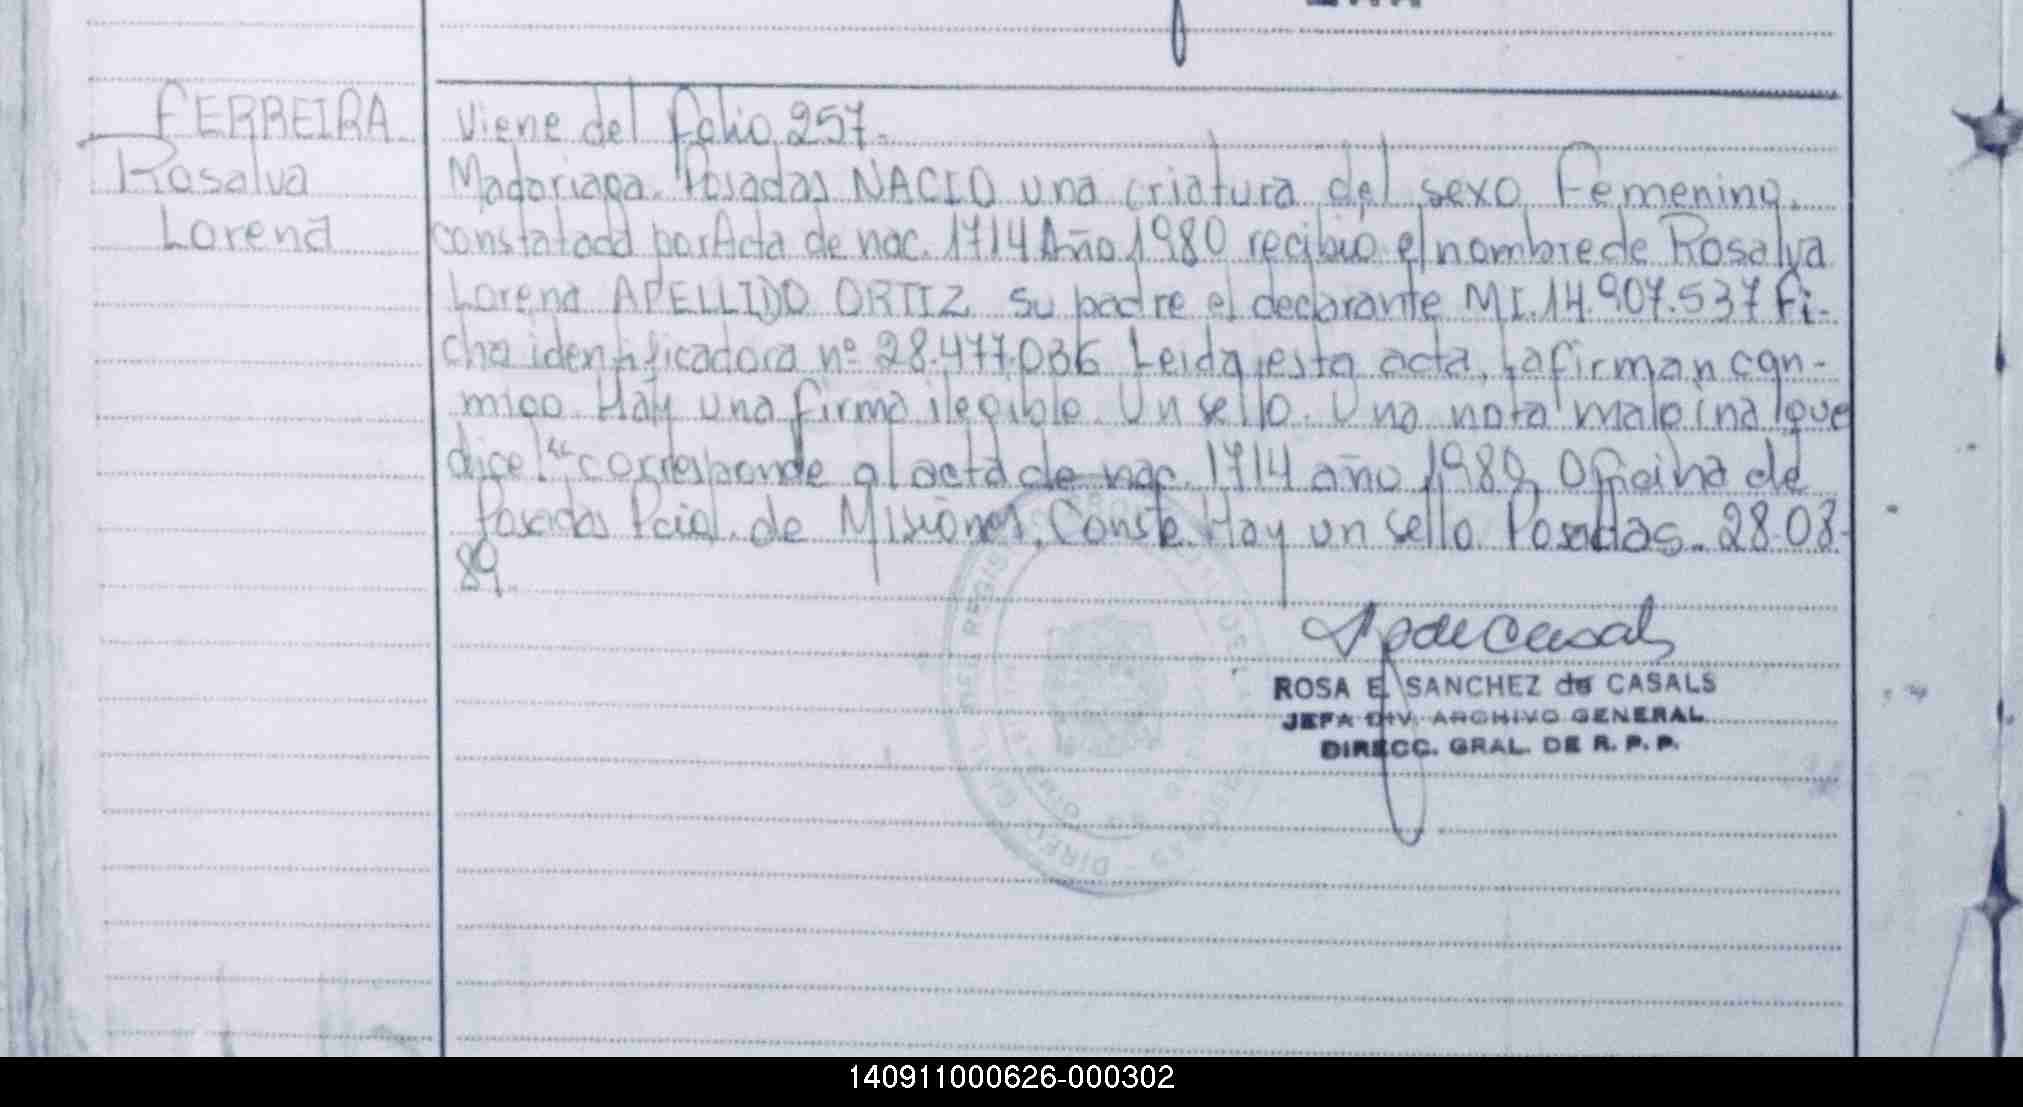 FERREIRA
Rosalva
Lorena
Viene del folio 257.
Madariaga. Posadas NACIO una criatura del sexo Femenino.
constatada por Acta de nac. 1714 Año 1980 recibio el nombre de Rosalva
Lorena APELLIDO ORTIZ su padre el declarante MI.14.907.537 Fi-
cha identificadora nº 28.477.036 Leida esta acta, la firman con-
migo Hay una firma ilegible. Un sello. Una nota malgina que
dice: "corresponde al acta de nac. 1714 año 1980 Oficina de
Posadas Pcia. de Misiones. Conste. Hay un sello Posadas. 28.03-
89.
ROSA E. SANCHEZ de CASALS
JEFA DIV. ARCHIVO GENERAL
DIRECC. GRAL. DE R. P. P.
140911000626-000302